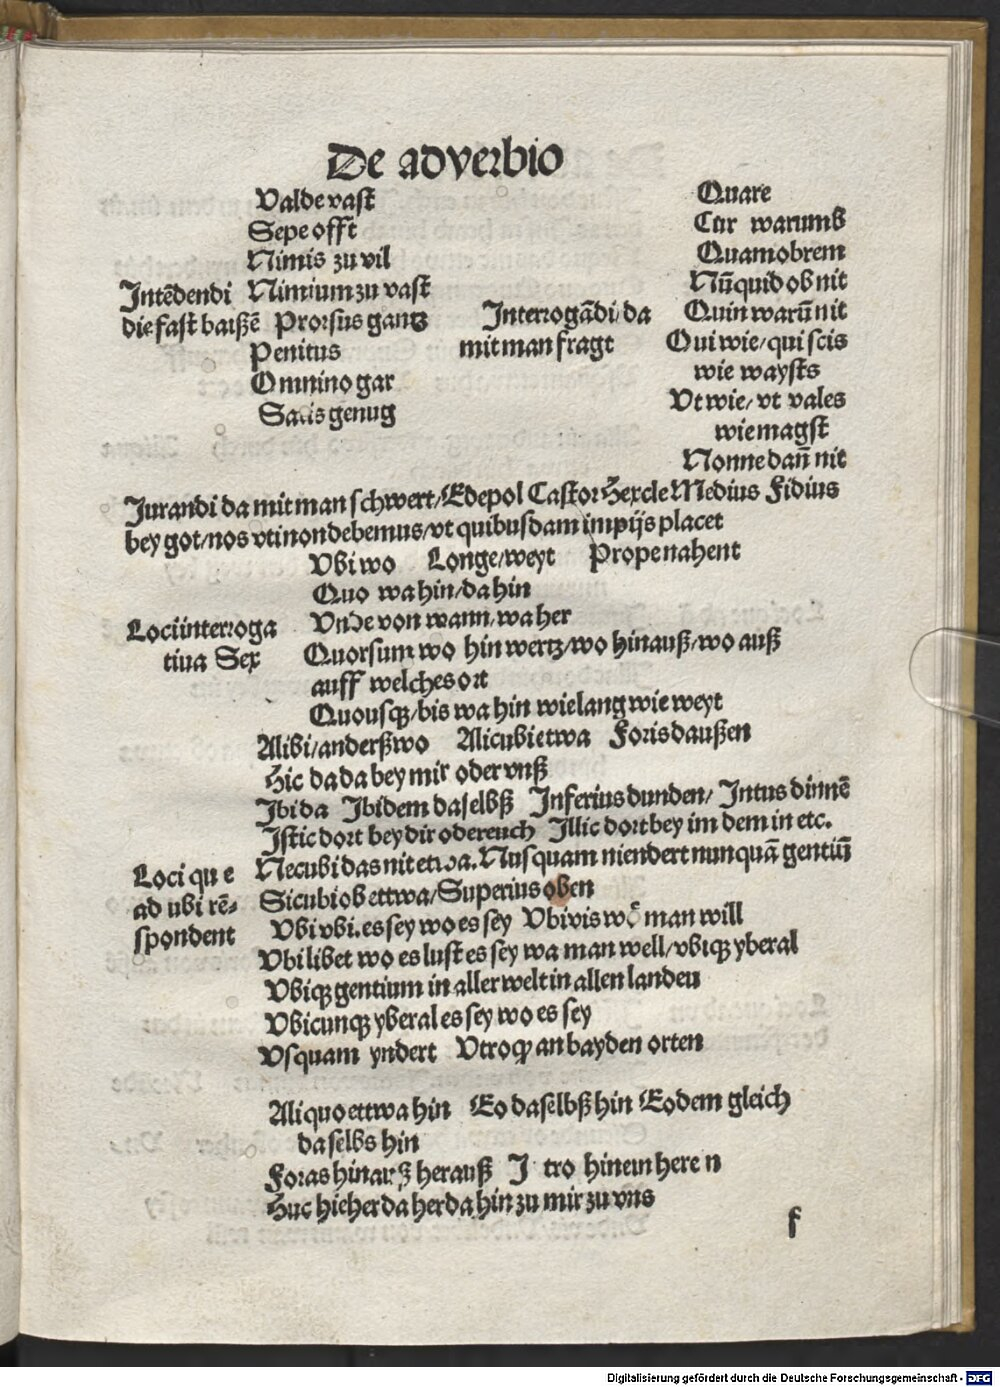 De adverbio
Valde vast
Sepe offt
Nimis zu vil
Intēdendi Nimium zu vast
die fast baißē Prorsus gantz
Penitus
Omnino gar
Satis genug
Interrogādi/da
mit man fragt
Quare
Cur warumb
Quamobrem
Nūquid ob nit
Quin warū nit
Qui wie/qui scis
wie waysts
Vt wie/vt vales
wie magst
Nonne dañ nit
Jurandi da mit man schwert/Edepol Castor Hercle Medius Fidius
bey got/nos vti non debemus/vt quibusdam impijs placet
Vbi wo Longe/weyt Prope nahent
Quo wa hin/da hin
Vnde von wann/wa her
Loci interroga
tiua Sex
Quorsum wo hin wertz/wo hinauß/wo auß
auff welches ort
Quousqꝫ/bis wa hin wie lang wie weyt
Alibi/anderßwo Alicubi etwa Foris daußen
Hic da da bey mir oder vnß
Ibi da Ibidem daselbß Inferius dunden/Intus dinnē
Istic dort bey dir oder euch Illic dort bey im dem in etc.
Loci qu e
ad ubi rē-
spondent
Necubi das nit etwa. Nusquam niendert nunquā gentiū
Sicubi ob ettwa/Superius oben
Vbi vbi. es sey wo es sey Vbivis wo man will
Vbi libet wo es lust es sey wa man well/vbiqꝫ yberal
Vbiqꝫ gentium in aller welt in allen landen
Vbicunqꝫ yberal es sey wo es sey
Vsquam yndert Vtroqꝫ an bayden orten
Aliquo ettwa hin Eo daselbß hin Eodem gleich
daselbs hin
Foras hinauß herauß I tro hinein here n
Huc hieher da her da hin zu mir zu vns
f
Digitalisierung gefördert durch die Deutsche Forschungsgemeinschaft - DFG